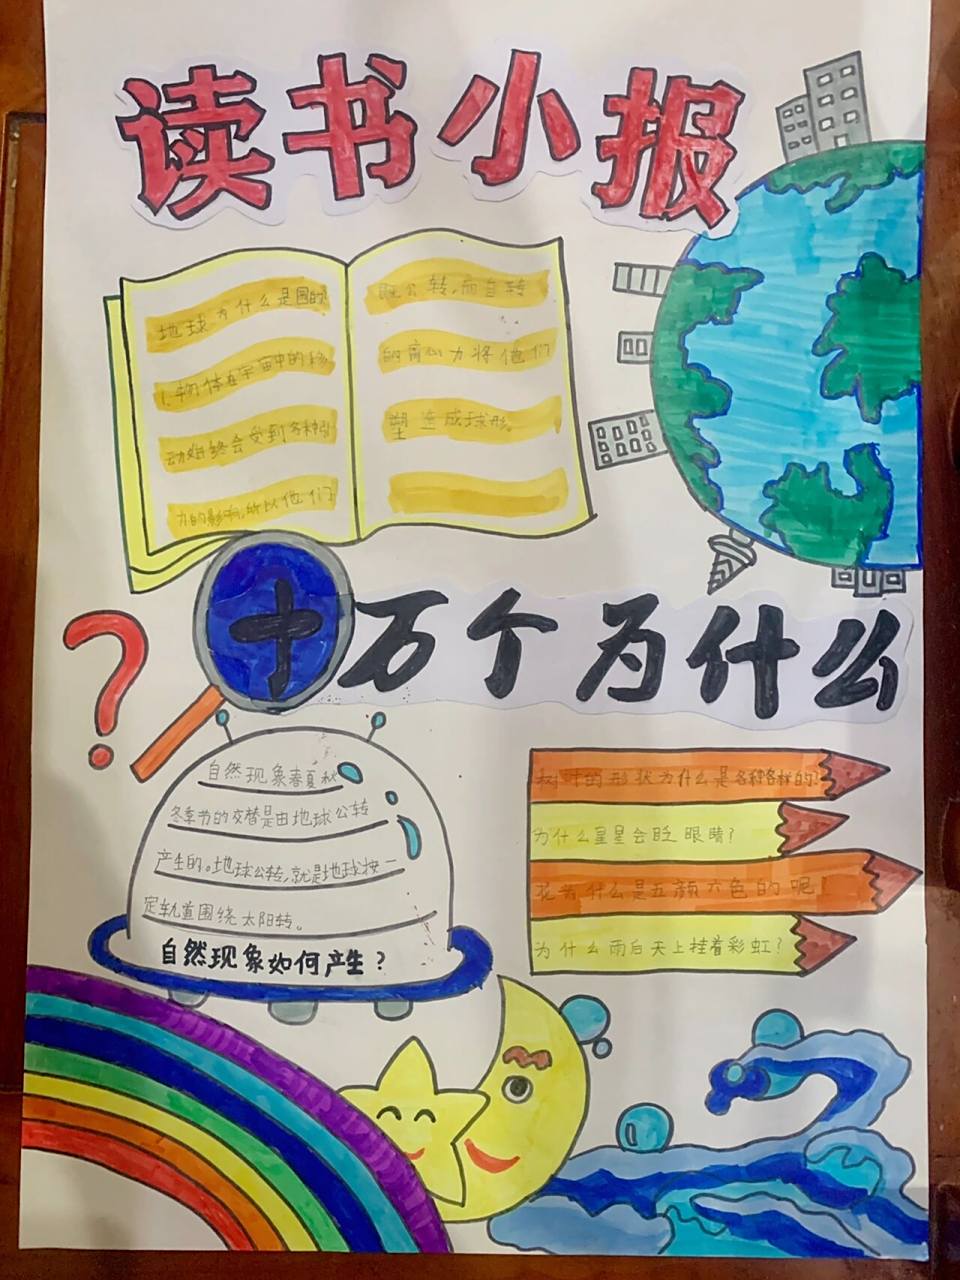 读书小报
地球为什么是圆的?
1.物体在宇宙中的移
动始终会受到多种引
力的影响,所以他们
既公转,而自转
的离心力将他们
塑造成球形。
十万个为什么
?
自然现象春夏秋
冬季节的交替是由地球公转
产生的。地球公转,就是地球按一
定轨道围绕太阳转。
自然现象如何产生?
树叶的形状为什么是各种各样的?
为什么星星会眨眼睛?
花为什么是五颜六色的呢!
为什么雨后天上挂着彩虹?